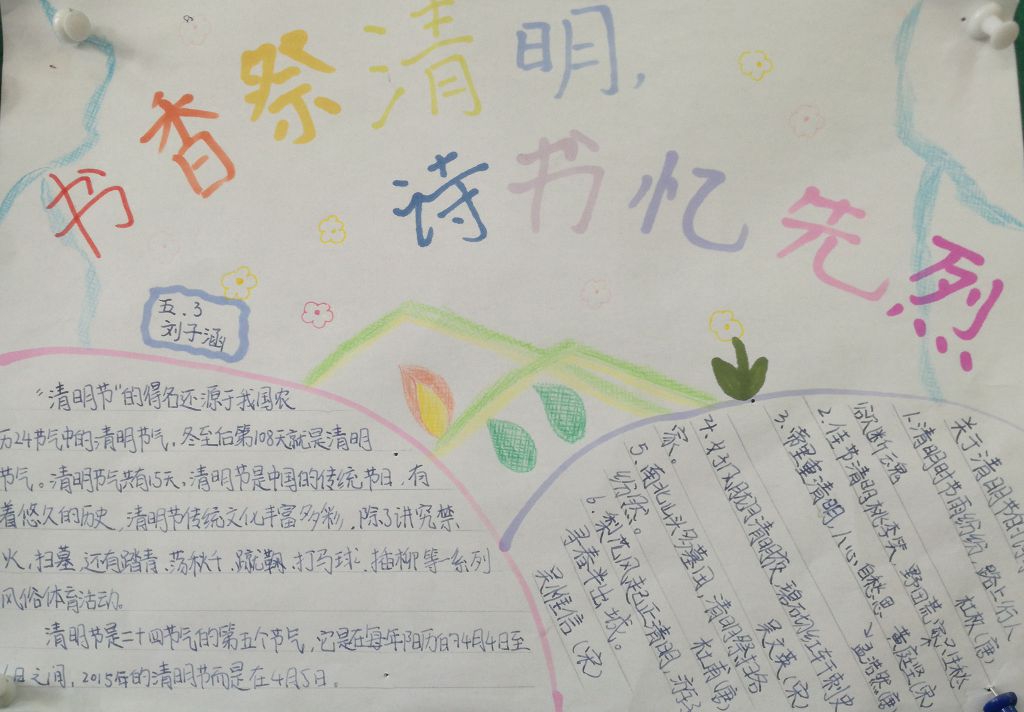 书香祭清明，
诗书忆先烈
五.3
刘子涵
“清明节”的得名还源于我国农
历24节气中的清明节气。冬至后第108天就是清明
节气。清明节气共有15天。清明节是中国的传统节日，有
着悠久的历史，清明节传统文化丰富多彩，除了讲究禁
火，扫墓，还有踏青，荡秋千，蹴鞠，打马球，插柳等一系列
风俗体育活动。
清明节是二十四节气的第五个节气，它是在每年阳历的4月4日至
6日之间，2015年的清明节而是在4月5日。
关于清明节的诗
1.清明时节雨纷纷，路上行人
欲断魂 杜牧（唐）
2.佳节清明桃李笑，野田荒冢
黄庭坚（宋
3.帝里重清明，人心自愁思
孟浩然（唐
4.
吴文英（宋）
5.南北山头多墓田，清明祭扫
纷然。
6.梨花风起正清明，游子
寻春半出城。
吴惟信（宋